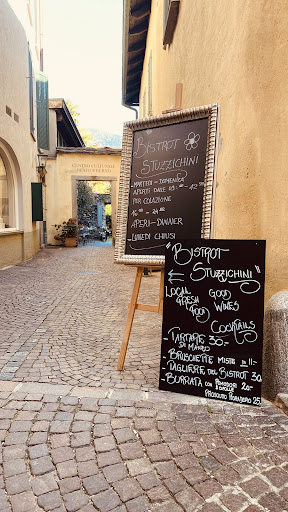 CENTRO CULTURALE
BISTROT
STUZZICHINI
MARTEDI - DOMENICA
APERTI DALLE
PER COLAZIONE
APERI-DINNER
LUNEDI CHIUSI
"BISTROT
STUZZICHINI"
LOCAL GOOD
FRESH WINES
FOOD
COCKTAILS
- TARTARE 30.-
DI MANZO
- BRUSCHETTE MISTE 11.-
- TAGLIERE DEL BISTROT 30.-
- BURRATA CON POMODORI
PROSCIUTTO 25.